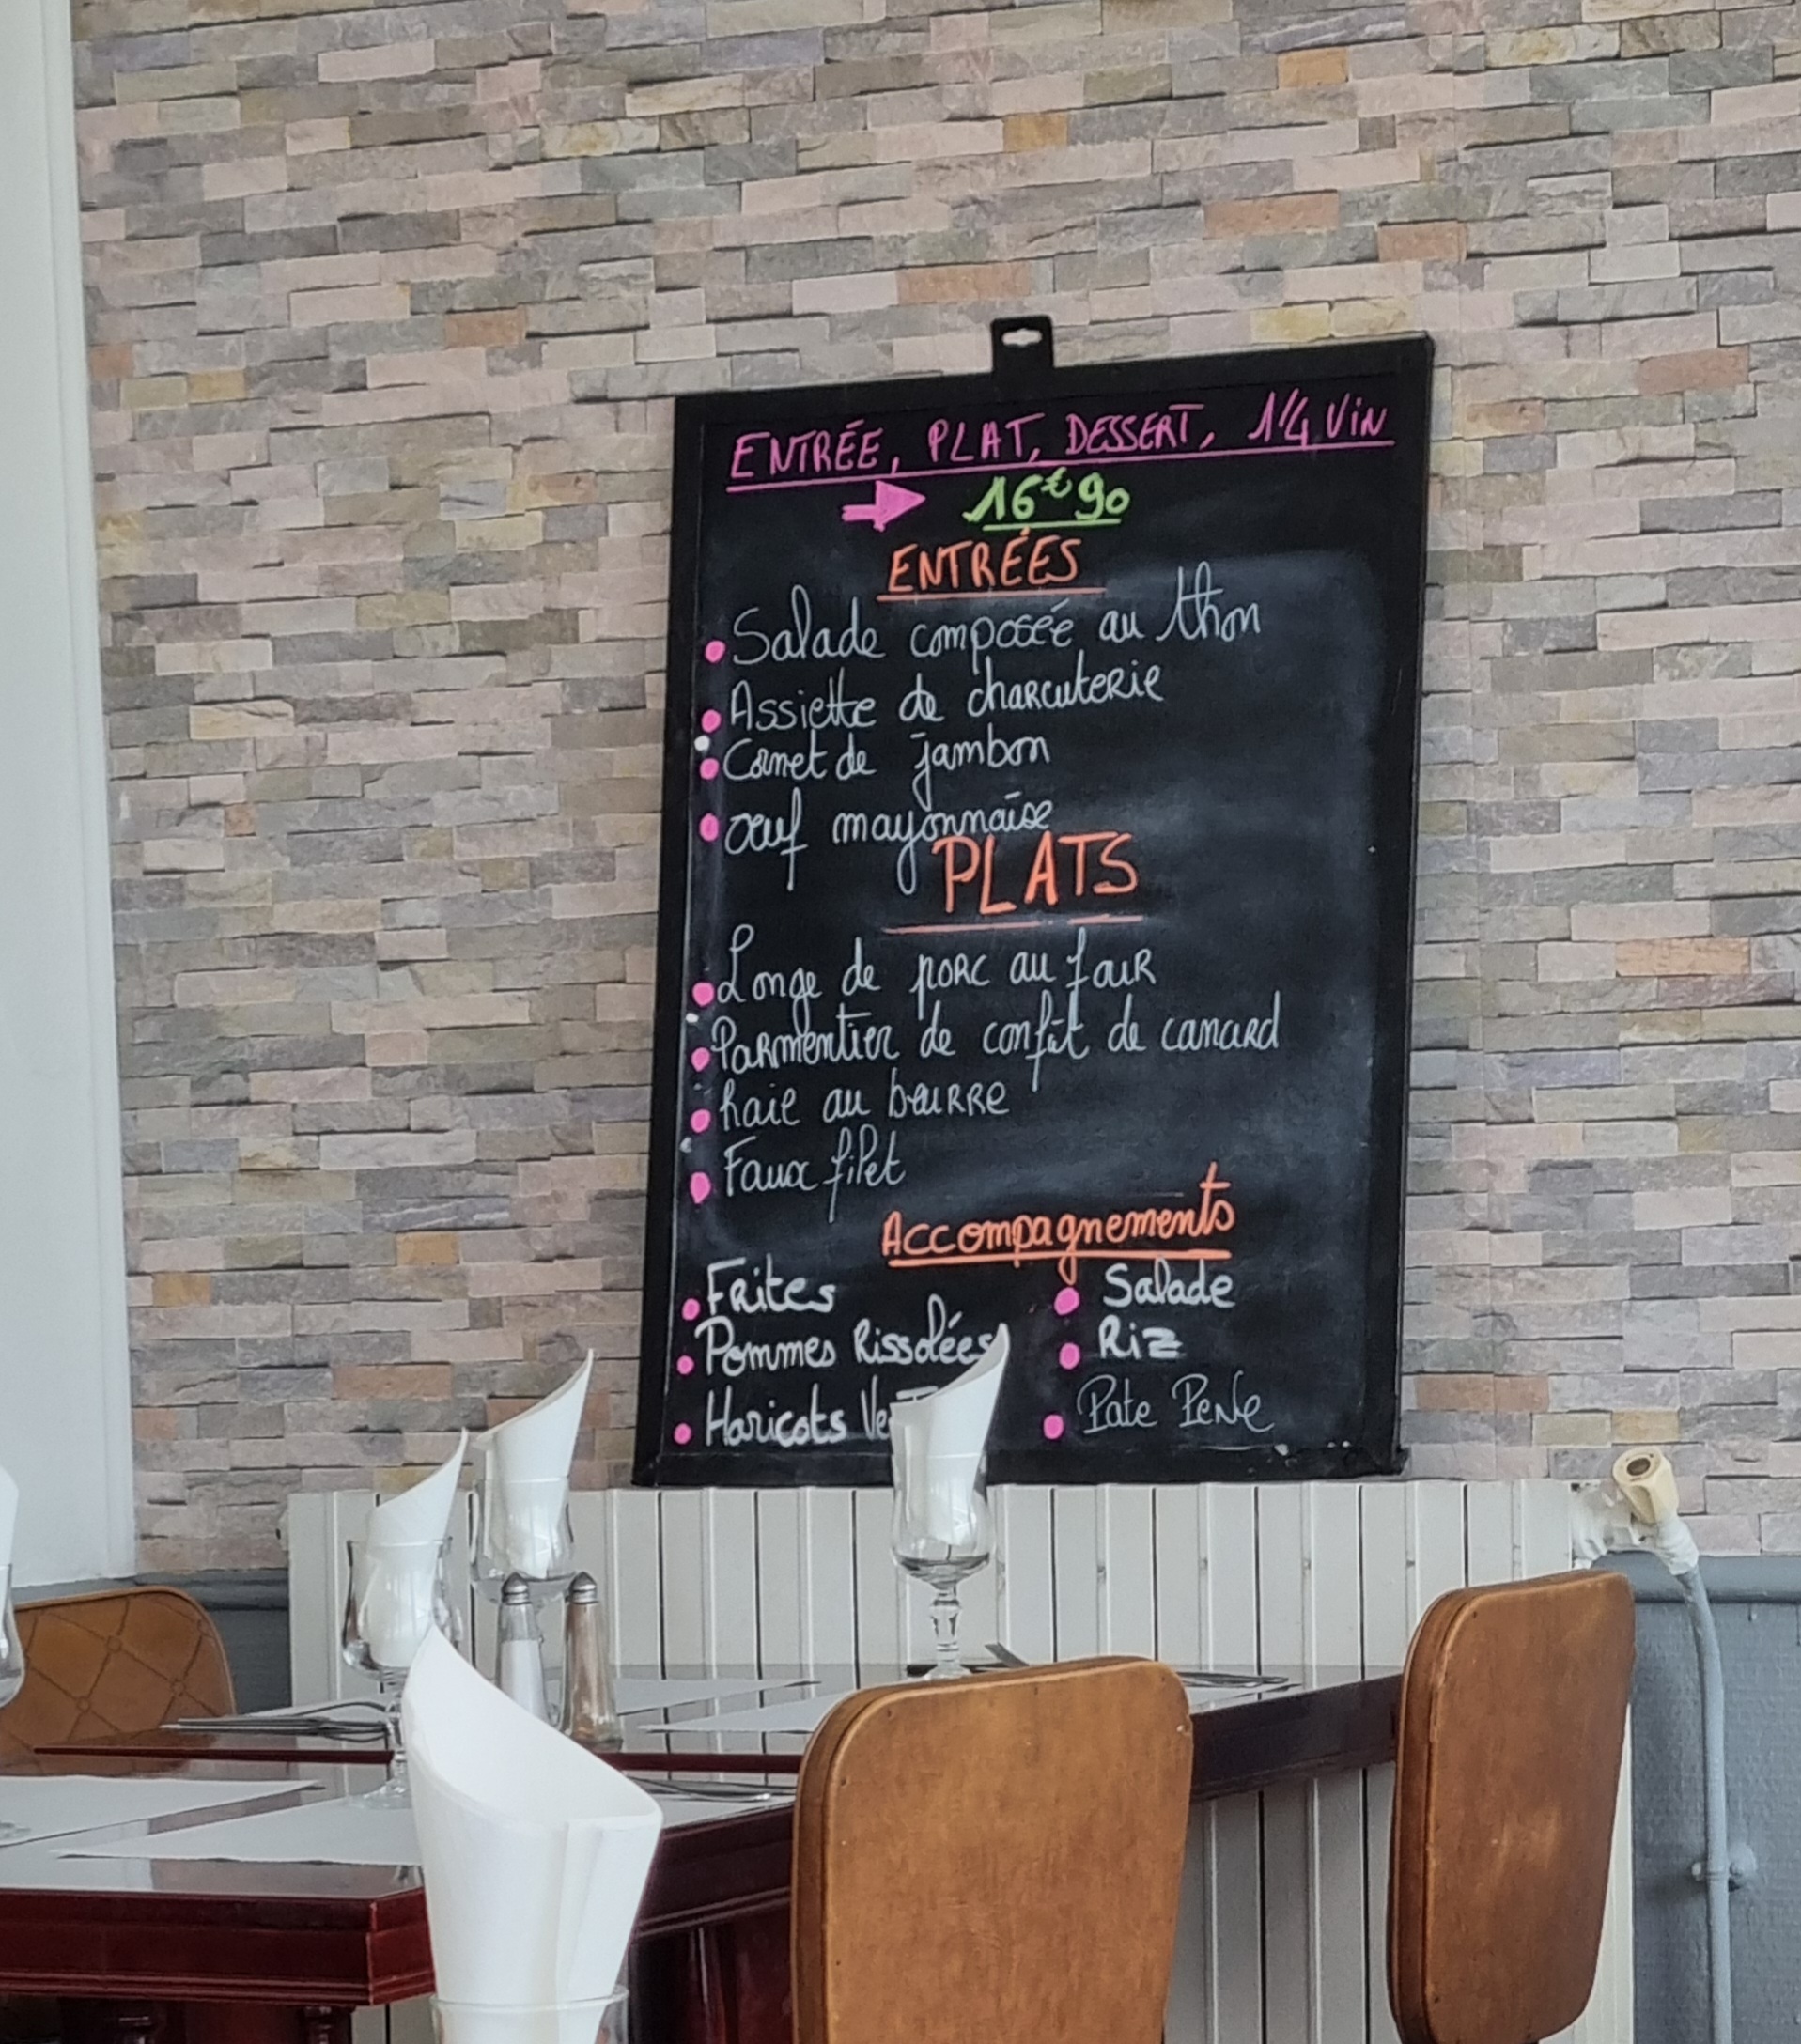 ENTRÉE, PLAT, DESSERT, 1/4 ViN
16€90
ENTRÉES
Salade composée au thon
Assiette de charcuterie
Cornet de jambon
œuf mayonnaise
PLATS
Longe de porc au four
Parmentier de confit de canard
Raie au beurre
Faux filet
Accompagnements
Frites
Pommes Rissolées
Haricots
Salade
Riz
Pate Pene